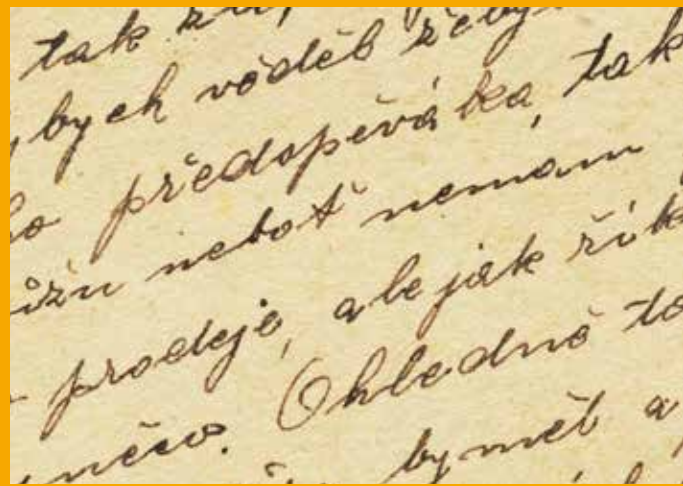 tak
bych věděl žeby
ho předzpěváka, tak
ůžu neboť nemám
prodeje, ale jak řík
něco. Ohledně to
by měl a